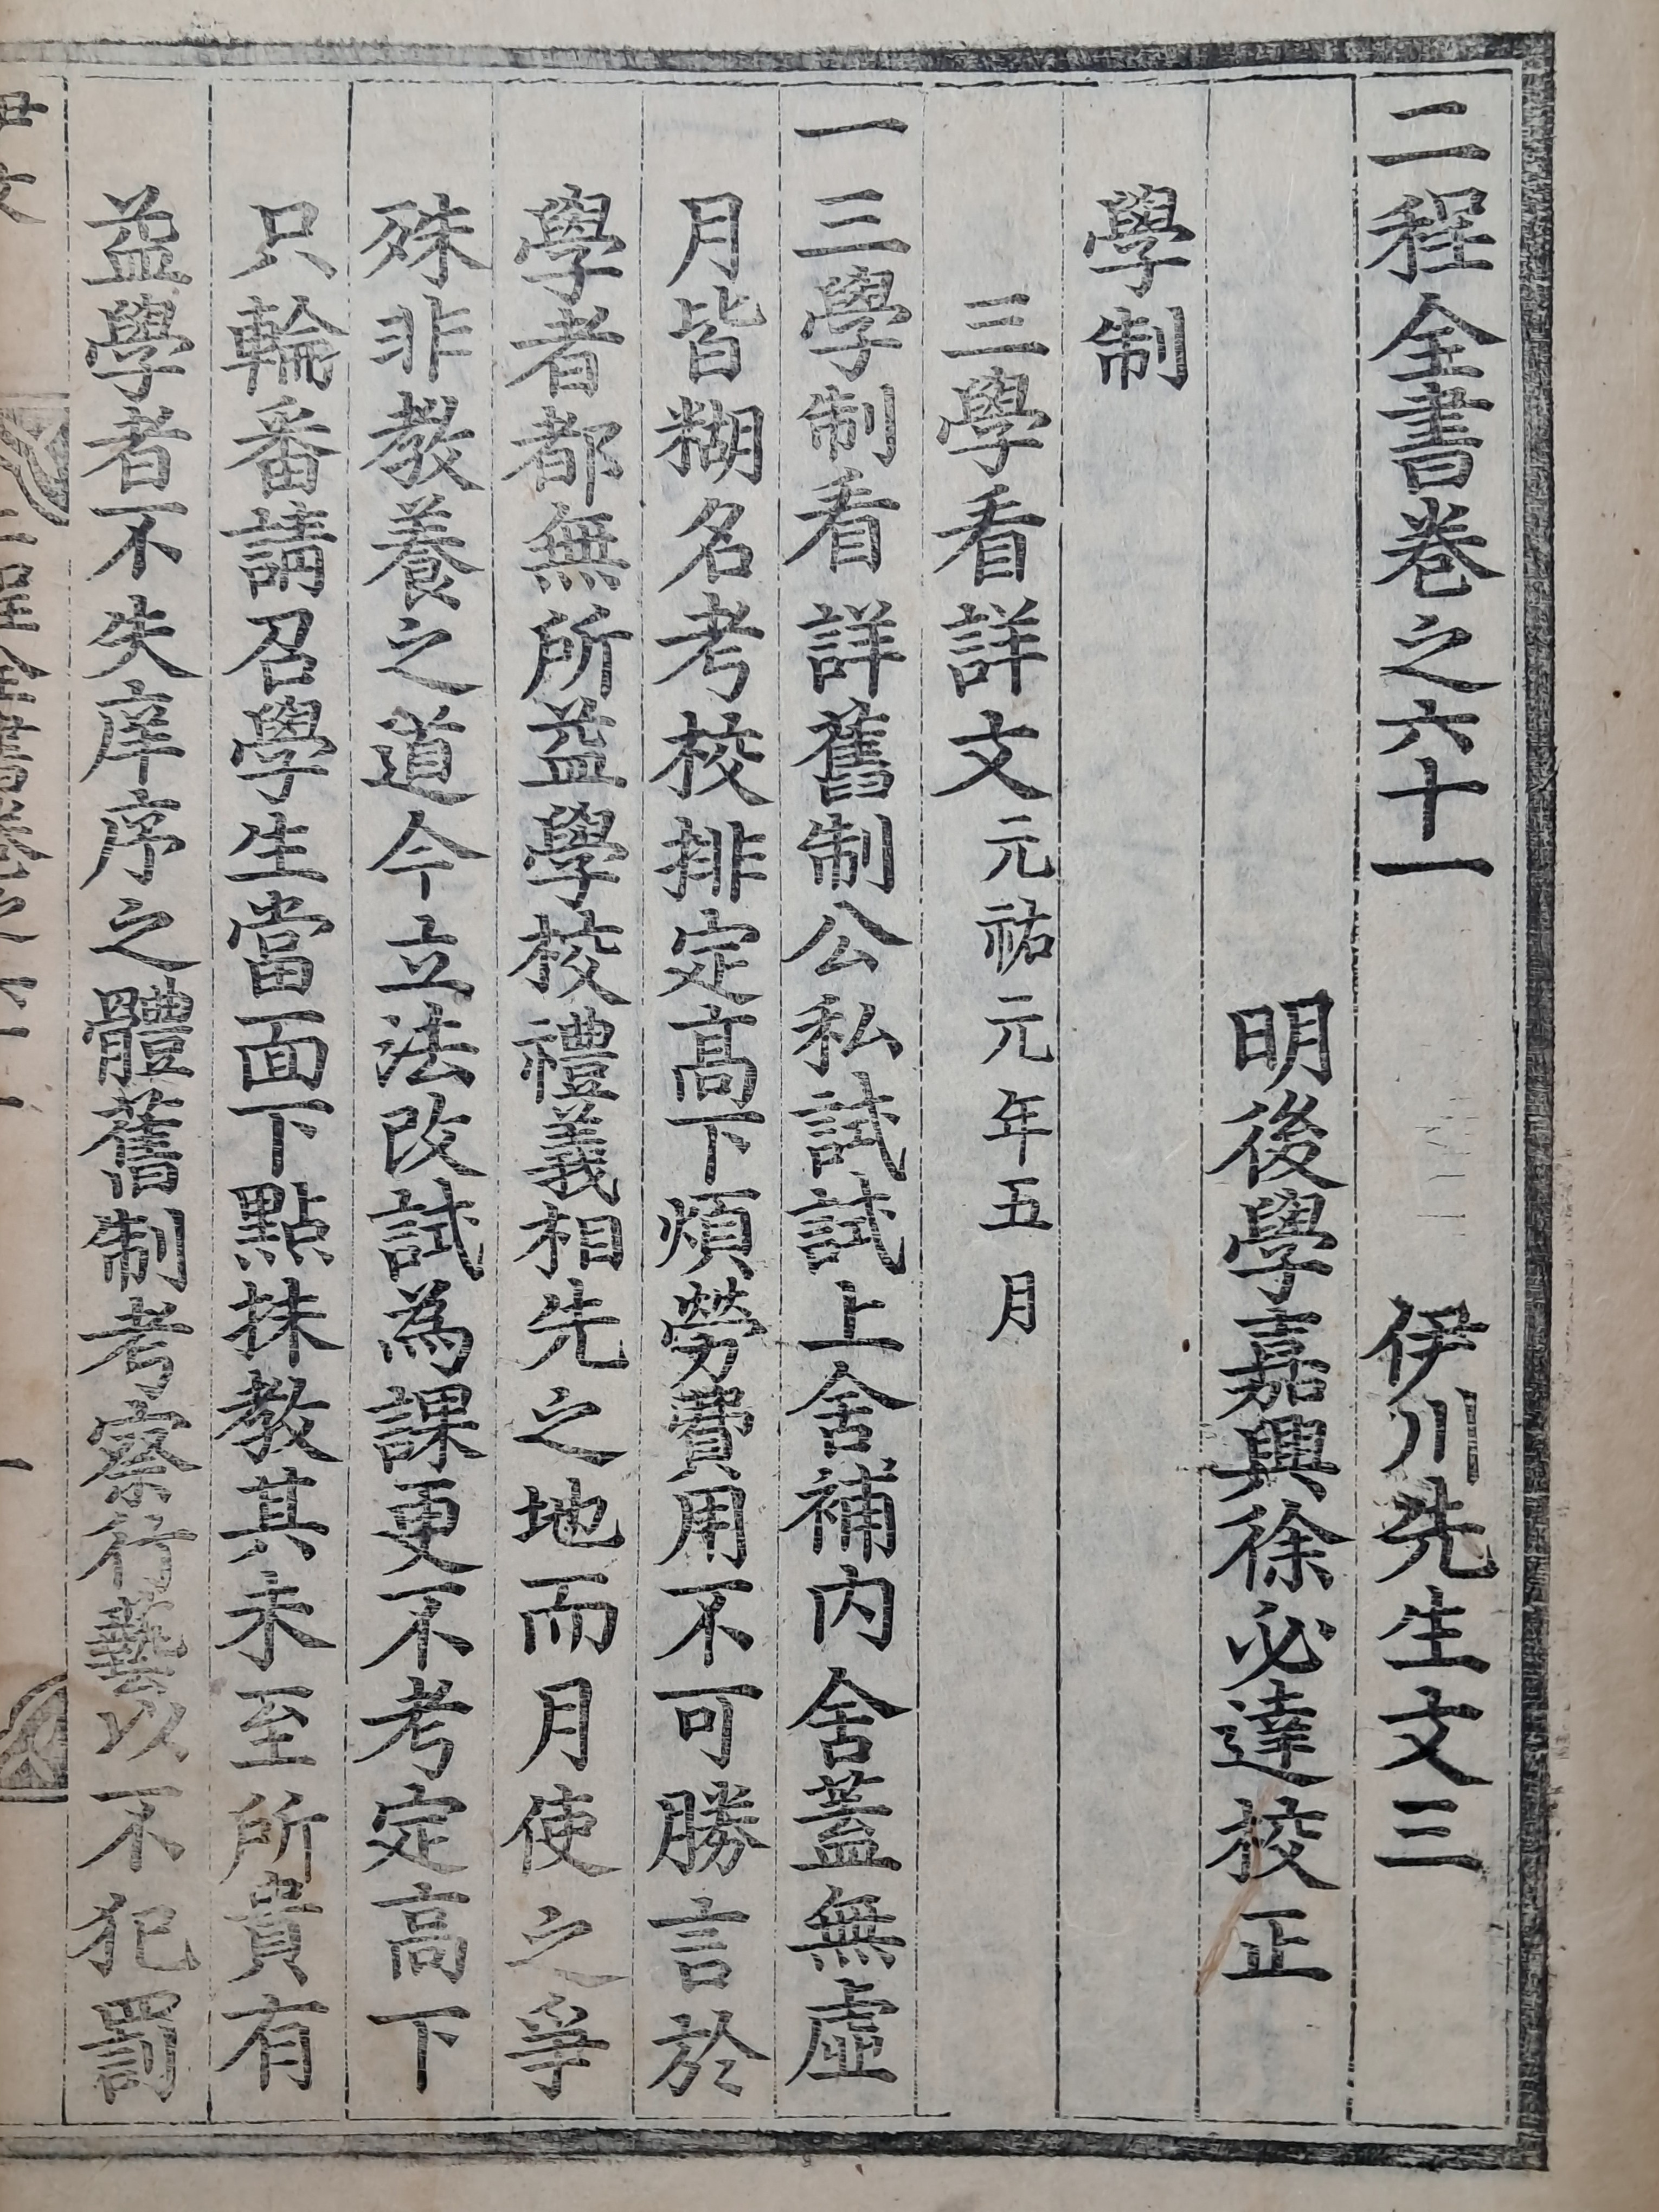 二程全書卷之六十一 伊川先生文三
明後學嘉興徐必達校正
學制
三學看詳文元祐元年五月
一三學制看詳舊制公私試試上舍補內舍蓋無虛
月皆糊名考校排定高下煩勞費用不可勝言於
學者都無所益學校禮義相先之地而月使之爭
殊非教養之道今立法改試為課更不考定高下
只輪番請召學生當面下點抹教其未至所貴有
益學者不失庠序之體舊制考察行藝以不犯罰
二程全書卷之六十一